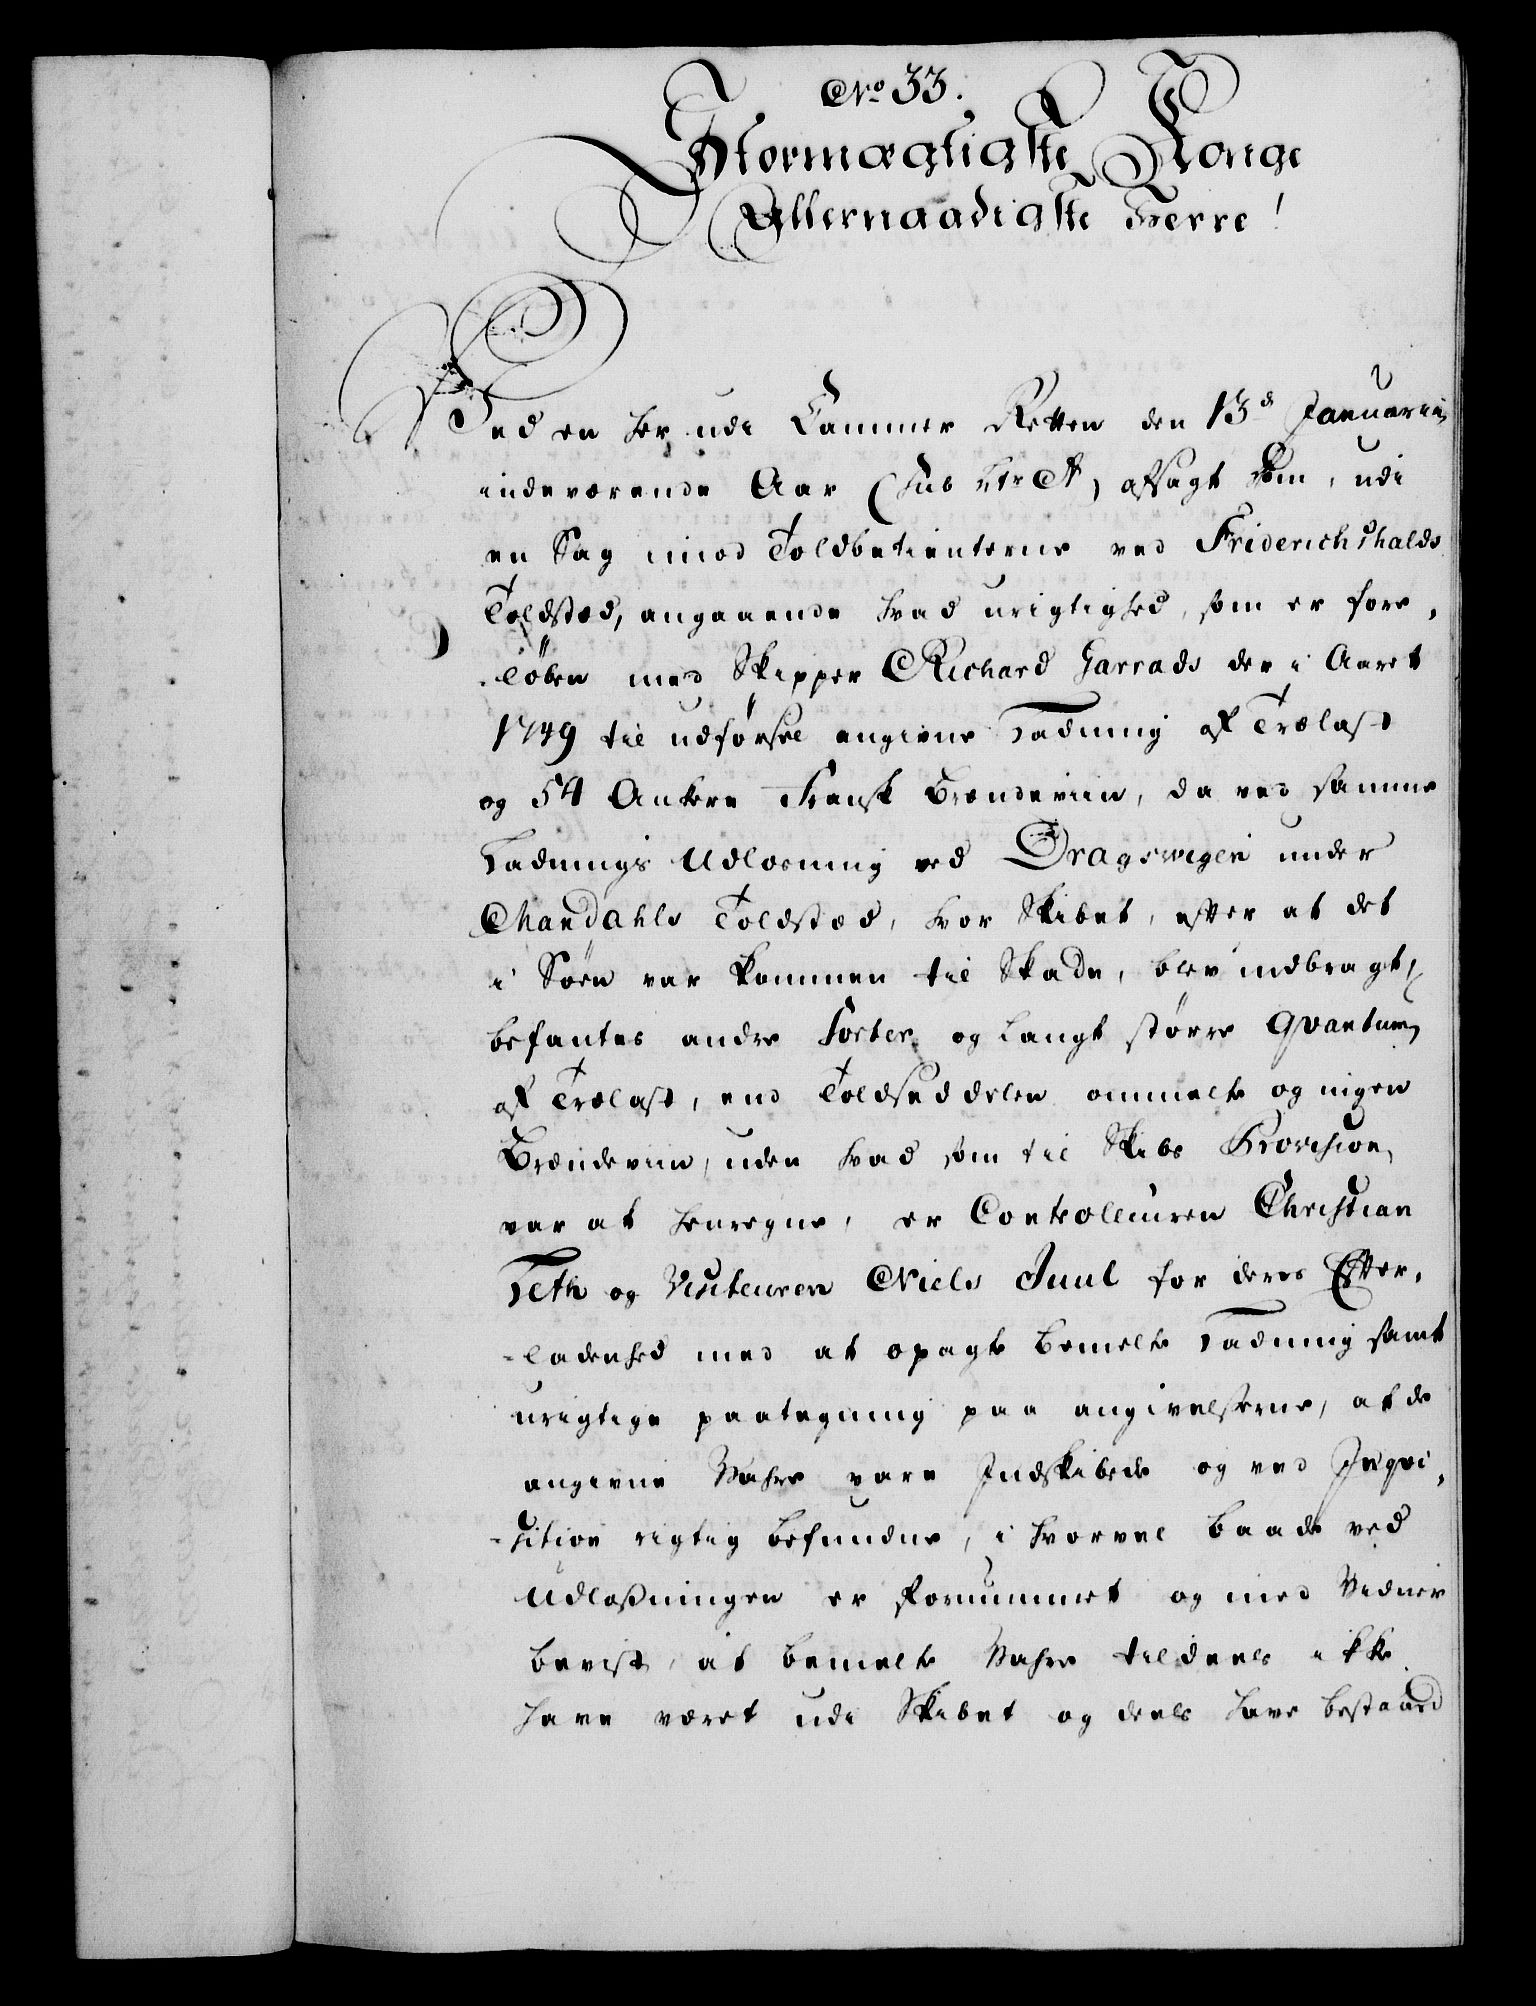 No. 33.
Stormægtigste Konge
Allernaadigste Herre!
Ved en her udi Cammer Retten den 13d Januarii
indeværende Aar (sub Ltr A) afsagt Dom, udi
en Sag imod Toldbetienterne ved Friderichshalds
Toldsted, angaaende hvad urigtighed, som er fore-
-löben med Skipper Richard Garrads der i Aaret
1749 til udförsel angivne Ladning af Trælast
og 54 Ankere Fransk Brændeviin, da ved samme
Ladnings Udlosning ved Dragswigen under
Mandahls Toldsted, hvor Skibet, efter at det
i Söen var kommen til Skade, blev indbragt,
befantes andre Sorter og langt större Qvantum
af Trælast, end Toldseddelen ommelte og ingen
Brændeviin, uden hvad som til Skibs Provision
var at henregne, er Controlleuren Christian
Leth og Visiteuren Niels Juul for deres Efter-
-ladenhed med at opagte bemelte Ladning samt
urigtige paategning paa angivelserne, at de
angivne Wahre vare Indskibede og ved Inqvi-
-sition rigtig befundne, i hvorvel baade ved
Udlosningen er fornummet og med Vidner
bevist, at bemelte Wahre tildeels ikke
have været udi Skibet og deels have bestaaed